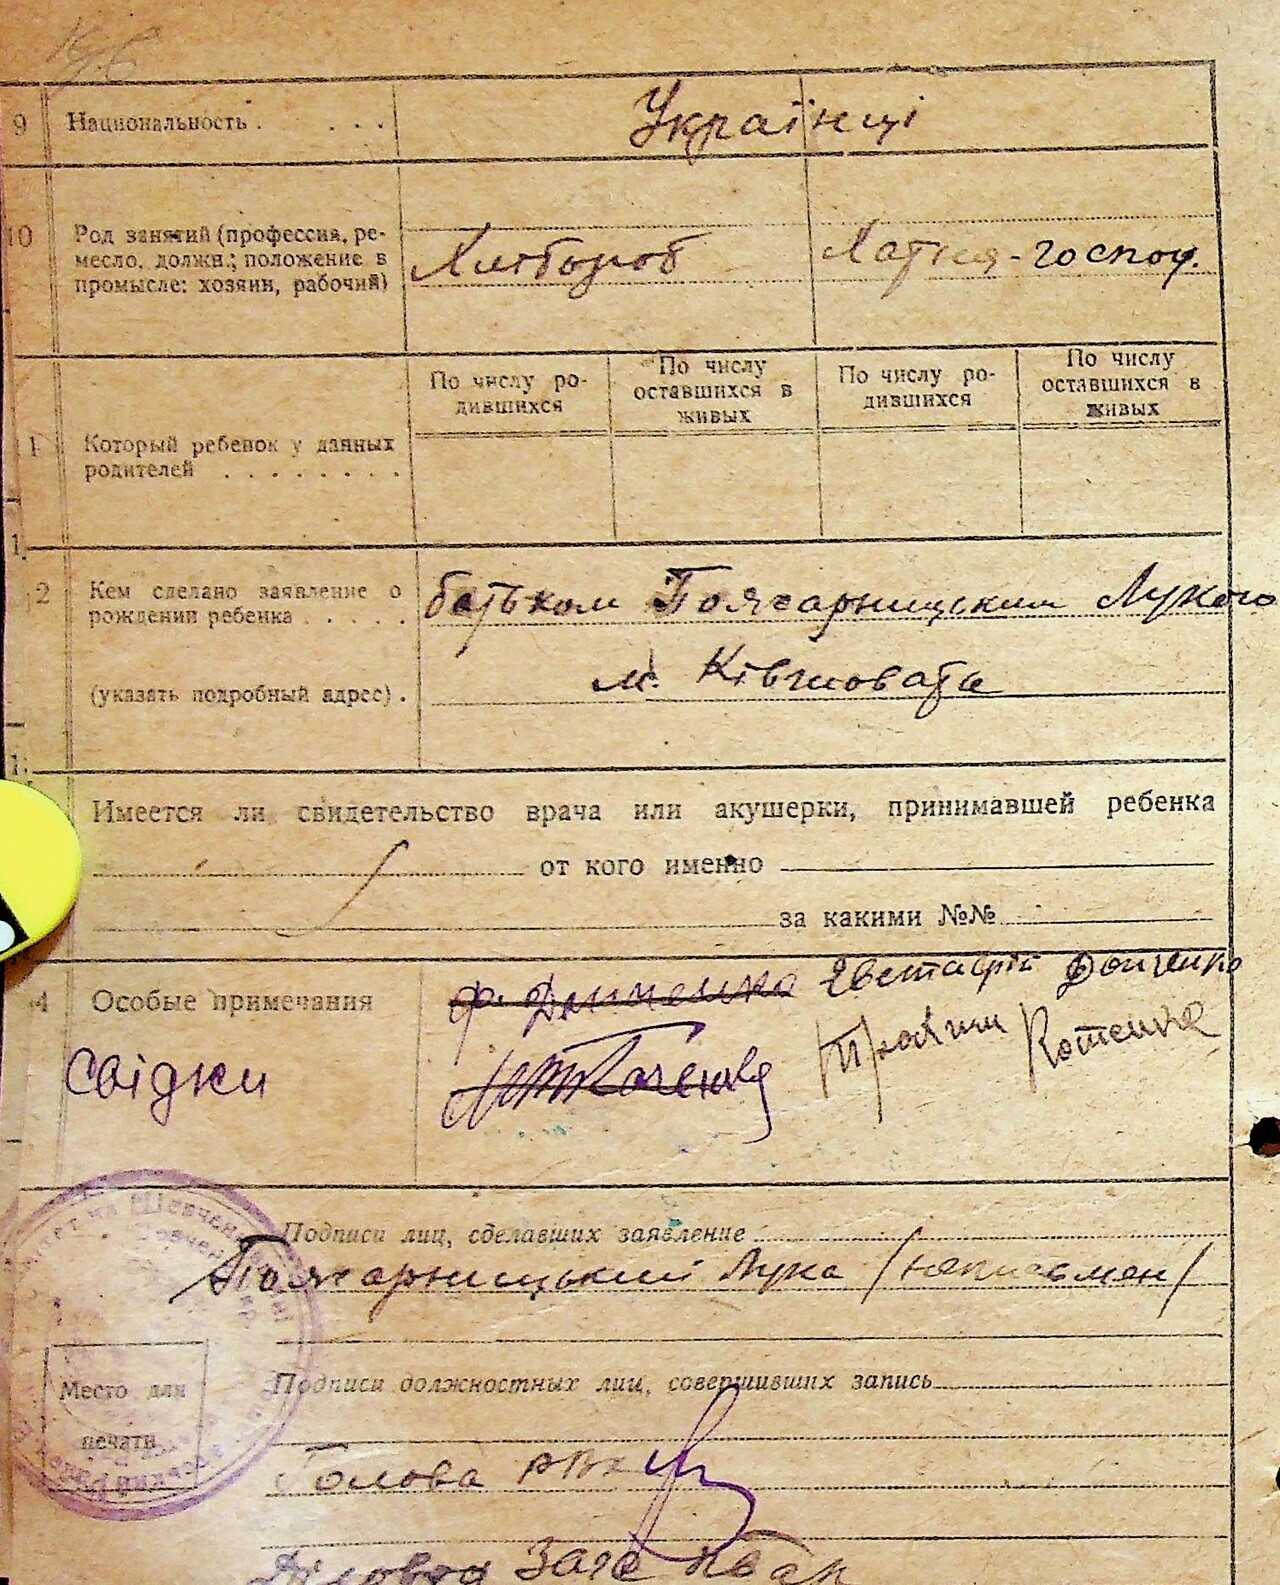 9 Национальность . . . . Українці
10 Род занятий (профессия, ре-
месло, должн.; положение в
промысле: хозяин, рабочий)
Хлибороб Хатня-господ.
По числу ро-
дившихся
По числу
оставшихся в
живых
По числу ро-
дившихся
По числу
оставшихся в
живых
1 Который ребенок у данных
родителей . . . . . . . .
2 Кем сделано заявление о
рождении ребенка . . . . .
(указать подробный адрес) .
батьком Гоячарницьким Лукою
м. Ківшовата
Имеется ли свидетельство врача или акушерки, принимавшей ребенка
от кого именно
за какими №№
4 Особые примечания
Свідки
Євстафій Донченко
Котенко
Подписи лиц, сделавших заявление
Лука /неписьмен/
Место для
печати
Подписи должностных лиц, совершивших запись
Голова
Діловод